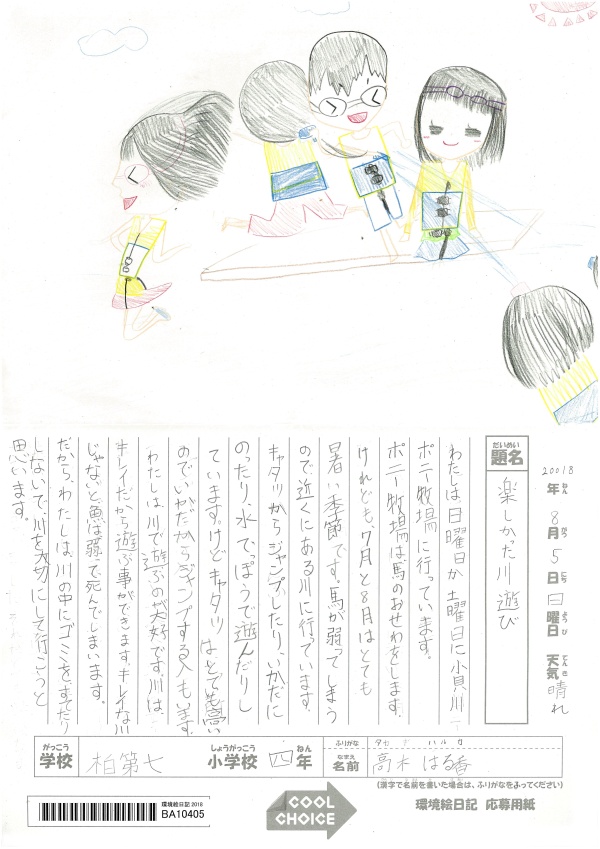 だいめい
題名
楽しかった川遊び
20018年 8月 5日 日曜日 天気 晴れ
ねん がつ にち ようび てんき
わたしは日曜日か土曜日に小貝川
ポニー牧場に行っています。
ポニー牧場は馬のおせわをします。
けれども、7月と8月はとても
暑い季節です。馬が弱ってしまう
ので近くにある川に行っています。
キャタツからジャンプしたり、いかだに
のったり、水でっぽうで遊んだりし
ています。けどキャタツはとても高い
のでいかだからジャンプする人もいます。
わたしは川で遊ぶのが大好です。川は、
キレイだから遊ぶ事ができます。キレイな川
じゃないと魚は弱って死んでしまいます。
だから、わたしは、川の中にゴミをすてたり
しないで、川を大切にして行こうと
思います。
がっこう
学校
柏第七
しょうがっこう
小学校
四
ねん
年
ふりがな
なまえ
名前
高木 はる香
(漢字で名前を書いた場合は、ふりがなをつけてください)
環境絵日記2018
BA10405
COOL
CHOICE
環境絵日記 応募用紙